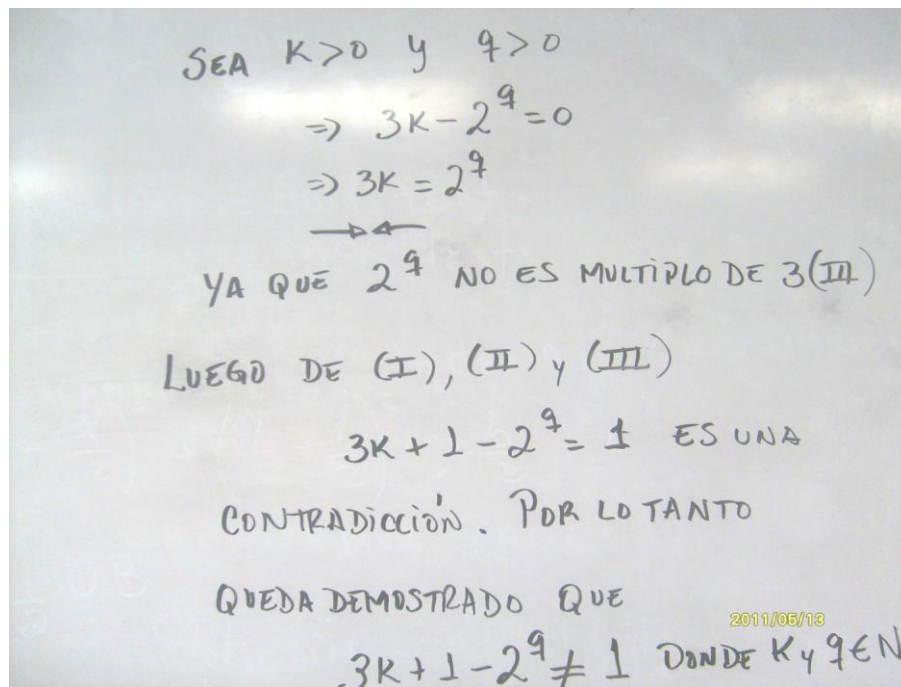 SEA K>0 y q>0
=> 3K-2^q=0
=> 3K=2^q
YA QUE 2^q NO ES MULTIPLO DE 3(III)
LUEGO DE (I), (II) y (III)
3K+1-2^q=1 ES UNA
CONTRADICCIÓN. POR LO TANTO
QUEDA DEMOSTRADO QUE
2011/05/13
3K+1-2^q≠1 DONDE K y q∈N